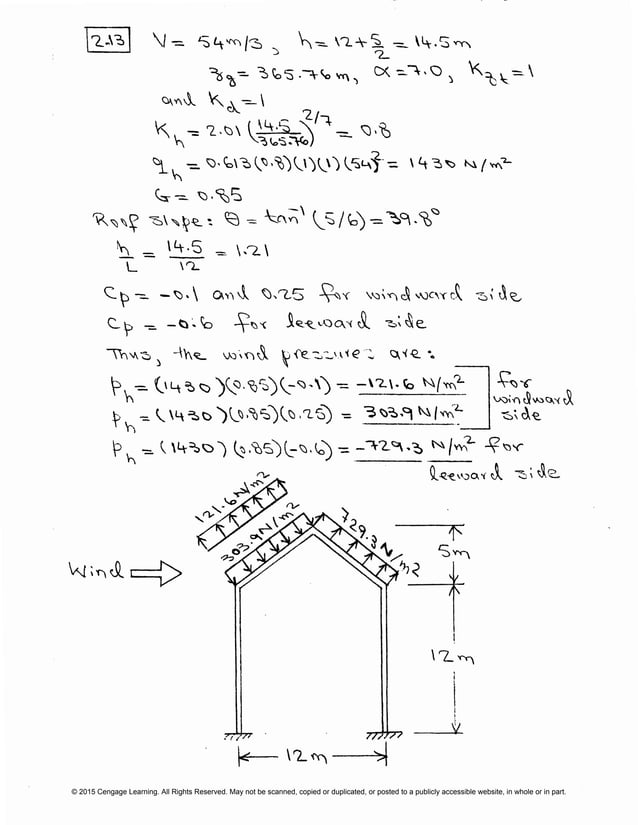 2.13 V = 54 m/s, h = 12 + 5/2 = 14.5 m
zg = 365.76 m, α = 7.0, Kzt = 1
and Kd = 1
Kh = 2.01 (14.5/365.76)^2/7 = 0.8
qh = 0.613 (0.8)(1)(1)(54)² = 1430 N/m²
G = 0.85
Roof slope: θ = tan⁻¹ (5/6) = 39.8°
h/L = 14.5/12 = 1.21
Cp = -0.1 and 0.25 for windward side
Cp = -0.6 for leeward side
Thus, the wind pressures are:
Ph = (1430)(0.85)(-0.1) = -121.6 N/m²
Ph = (1430)(0.85)(0.25) = 303.9 N/m²
for windward side
Ph = (1430)(0.85)(-0.6) = -729.3 N/m² for
leeward side
121.6 N/m²
303.9 N/m²
729.3 N/m2
5m
Wind
12 m
12 m
© 2015 Cengage Learning. All Rights Reserved. May not be scanned, copied or duplicated, or posted to a publicly accessible website, in whole or in part.